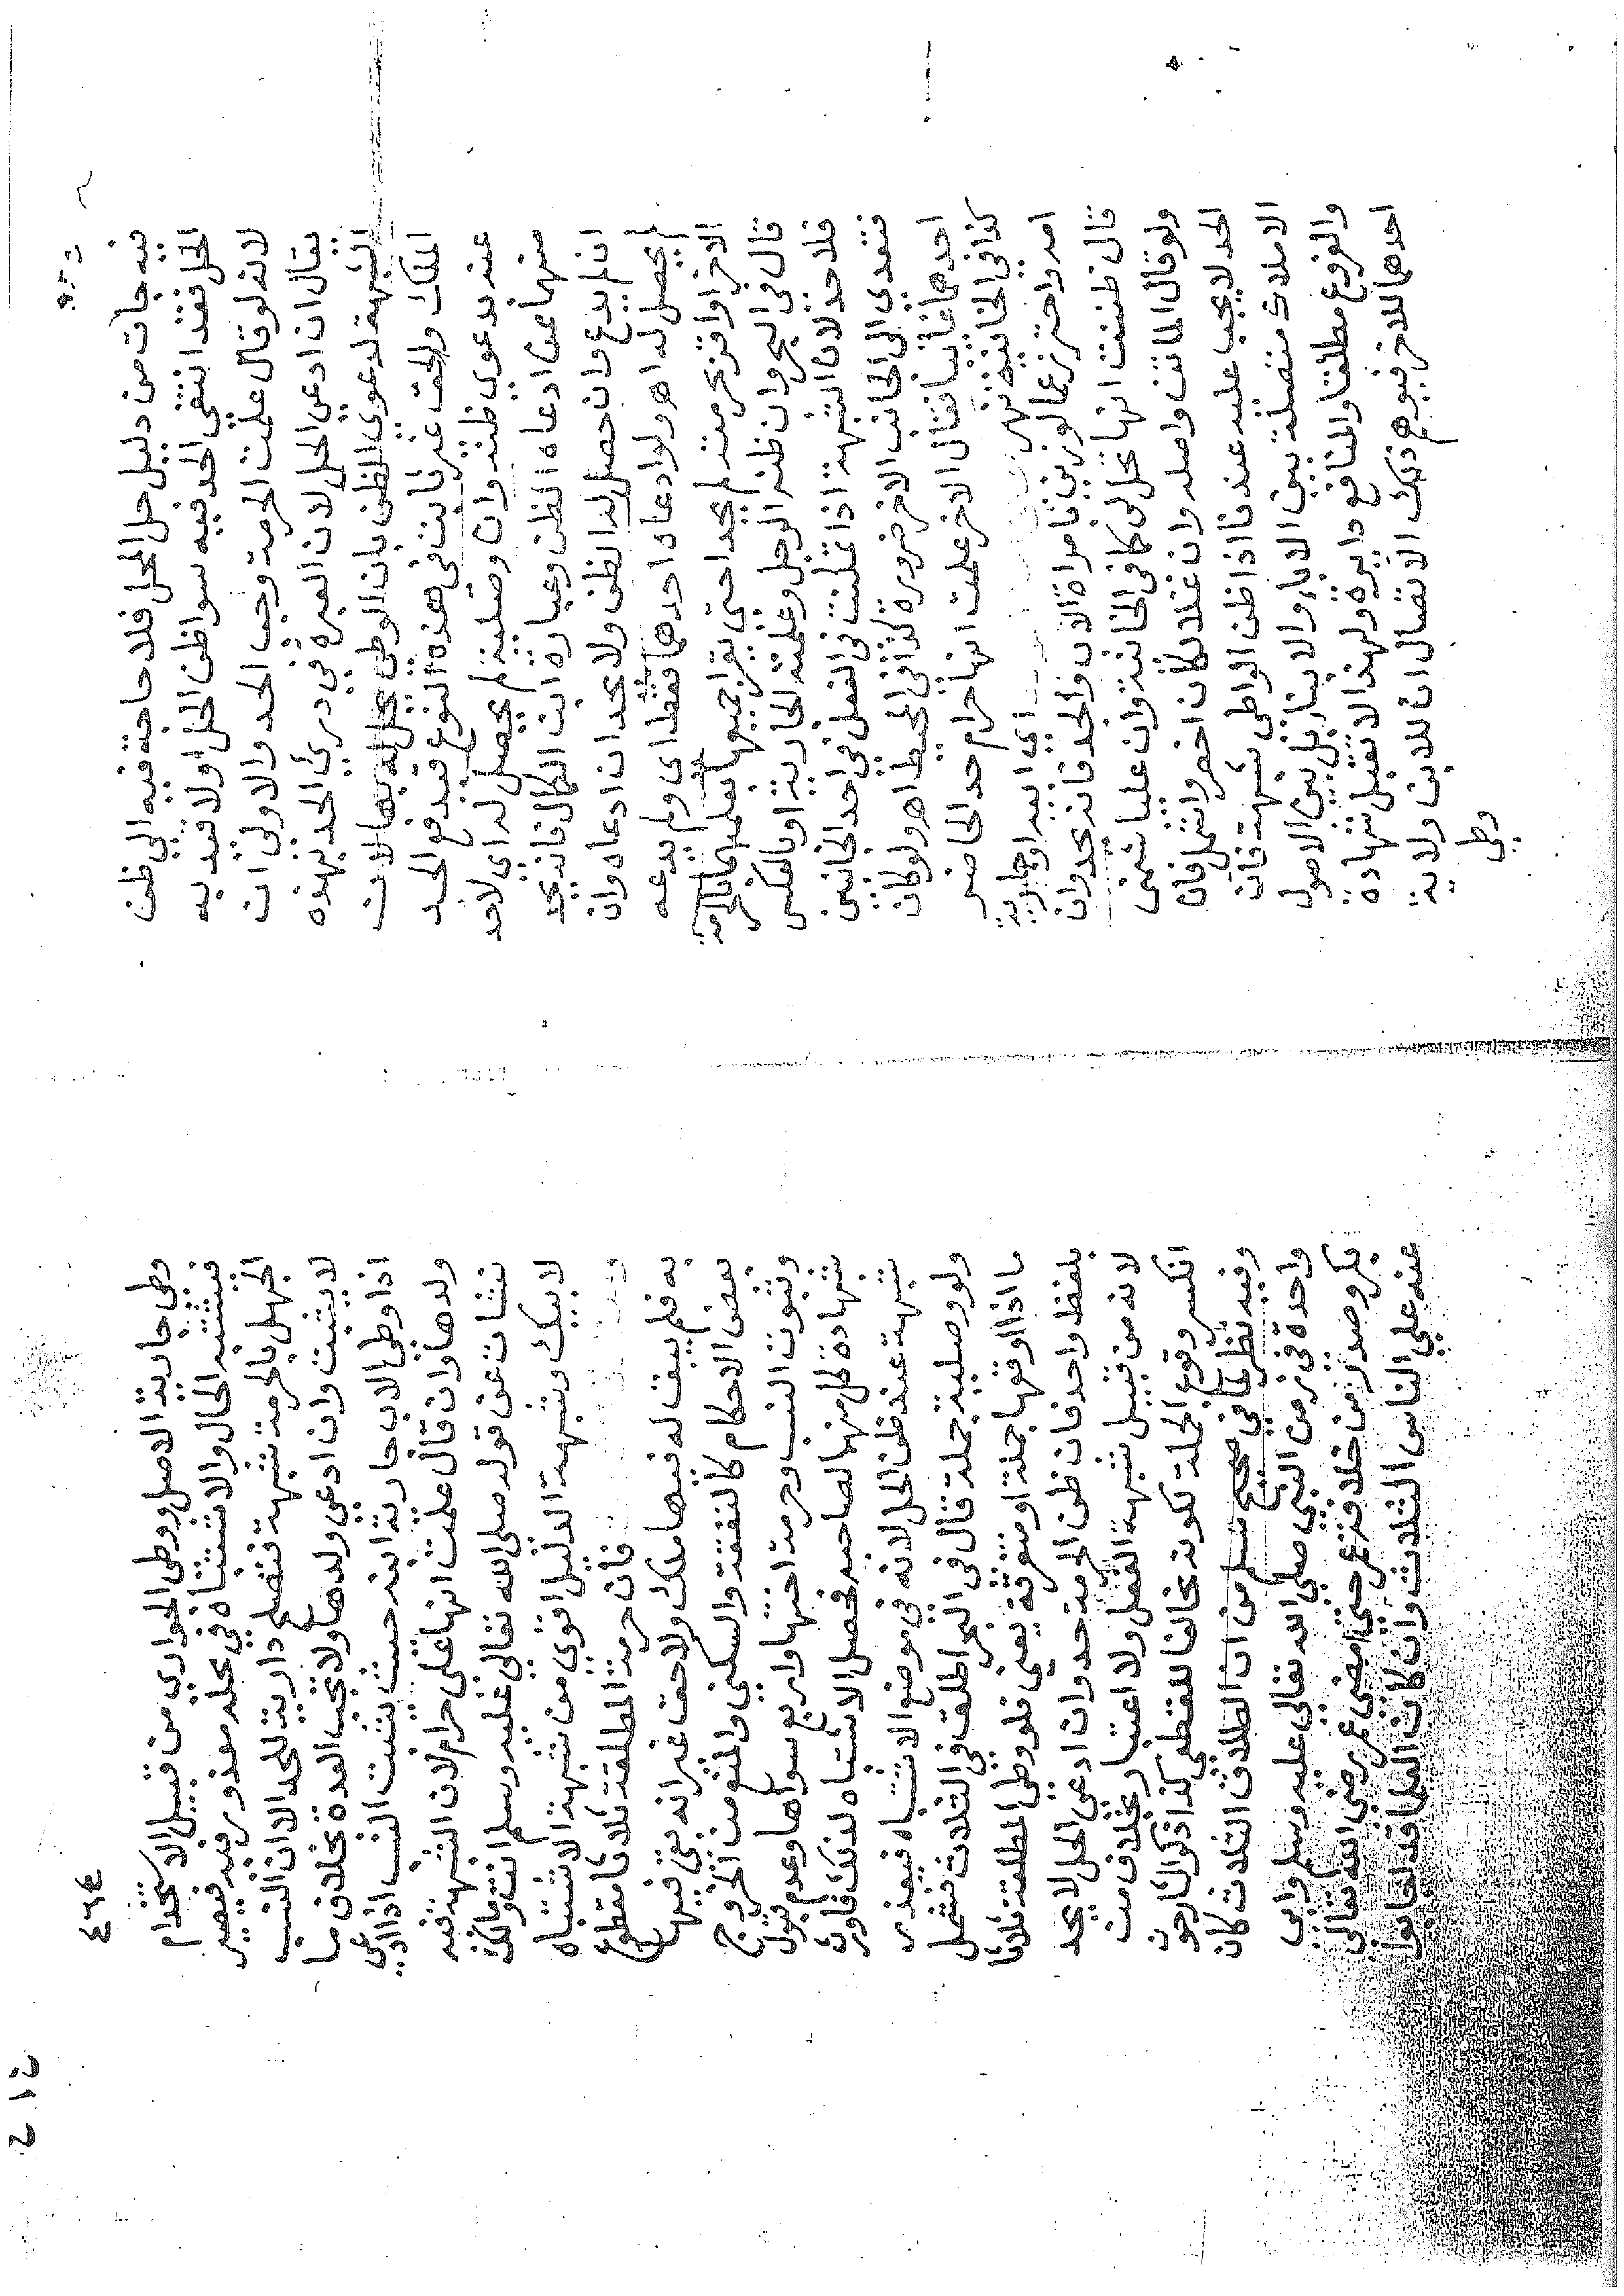 فيه جات من دليل حل المحل فلا حاجة فيه الي ظن
الحل فقد انتفى الحد فيه سوا ظن الحل او لا قيد به
لانه لو قال علمت الحرمة وجب الحد والاولي ان
يقال ان ادعي الحل لان العبرة في درئ الحد بهذه
الشبهة لدعوي الظن بان الوطي يحل له بها لا ن
الملك والحق غير ثابت في هذه النوع فيدفع الحد
عند دعوي ظنه وان وصلية لم يحصل له اي لاحد
منها عن ادعاه الظن وعبارة ابن الكمال فانه يحد
ان لم يدع وان حصل له الظن ولا يحد ان ادعاه وان
لم يحصل له اهـ ولو ادعاه احدهما فقط اي ولم يدعه
الاخر او اقر بحرمته لم يحدا حتى يقرا جميعا بعلمهما بالحرمة
قال في البحر وان ظنه الرجل وعلمته الجارية او بالعكس
فلا حد لان الشبهة اذا تمكنت في الفعل في احد الجانبين
فتعدي الى الجانب الاخر ضرورة كذا في المحيط اهـ ولو كان
احدهما غائبا فقال الاخر علمت انها حرام حد الحاضر
كذا في الخانية نهر اي ابيه او جارية
امه واحترز عما لو زنى بامراة الاب والجد فانه يحد وان
قال ظننت انها تحل لي كما في الخانية وان عليا شمني
ولو قال الماتن واصله وان علا لكان اخصر واشمل فان
الحد لا يجب عليه عندنا اذا ظن الواطى شبهة فان
الاملاك متصلة بين الابا والابنا بل بين الاصول
والفروع مطلقا والمنافع دايرة ولهذا لا تقبل شهادة
احدهما للاخر فيوهم ذلك الاتصال ان للابن ولاية
وطي
٤٦٤
وطي جارية الاصل ووطى الجواري من قبيل الاستخدام
فيشتبه الحال والاشتباه في محله معذور فيه فيصير
الجهل بالحرمة شبهة تصلح دارية للحد الا ان النسب
لا يثبت وان ادعي ولدها ولا تجب العدة بخلاف ما
اذا وطي الاب جارية ابنه حيث يثبت النسب اذا ادعي
ولدها وان قال علمت انها علي حرام لان الشبهة فيه
نشات عن قوله صلى الله تعالي عليه وسلم انت ومالك
لابيك وشبهة الدليل اقوي من شبهة الاشتباه
فان حرمة المطلقة ثلاثا مقطوع
به فلم يبق له فيها ملك ولا حق غير انه بقى فيها
بعض الاحكام كالنفقة والسكنى والمنع من الخروج
وثبوت النسب وحرمة اختها واربع سواها وعدم قبول
شهادة كل منهما لصاحبه فحصل الاشتباه لذلك فاورث
شبهة عند ظن الحل لانه في موضع الاشتباه فيعذر
ولو وصلية جملة قال في البحر اطلق في الثلاث فشمل
ما اذا اوقعها جملة او متفرقة يعني فلو وطي المطلقة ثلاثا
بلفظ واحد فان ظن الحرمة حد وان ادعي الحل لا يحد
لانه من قبيل شبهة الفعل ولا اعتبار بخلاف من
انكر وقوع الجملة لكونه مخالفا للقطعي كذا ذكر الشارحون
وفيه نظر لما في صحيح مسلم من ان الطلاق الثلاث كان
واحدة في زمن النبي صلى الله تعالى عليه وسلم وابى
بكر وصدر من خلافة عمر حتى امضى عمر رضي الله تعالى
عنه علي الناس الثلاث وان كان العلما قد اجابوا